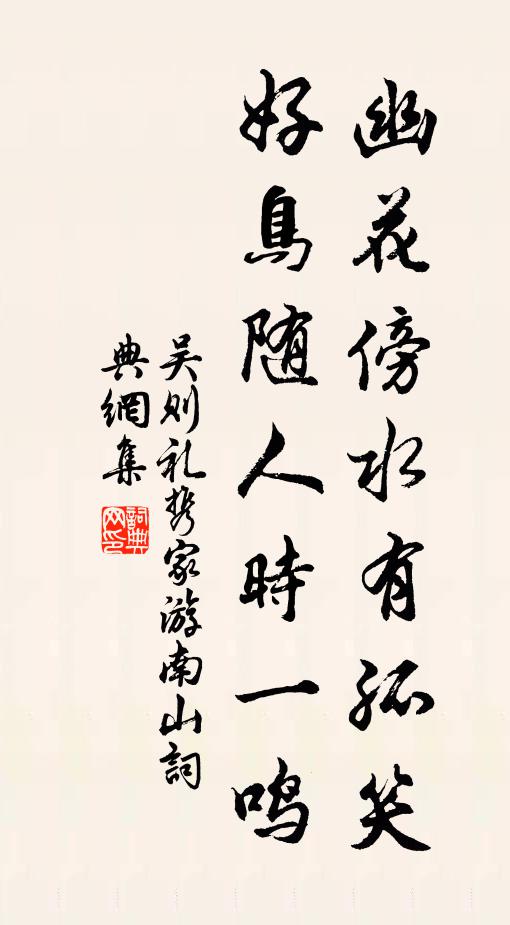 幽花傍水有孤笑
好鳥随人時一鳴
吴则礼携家游南山詞
典網集
詞典網印